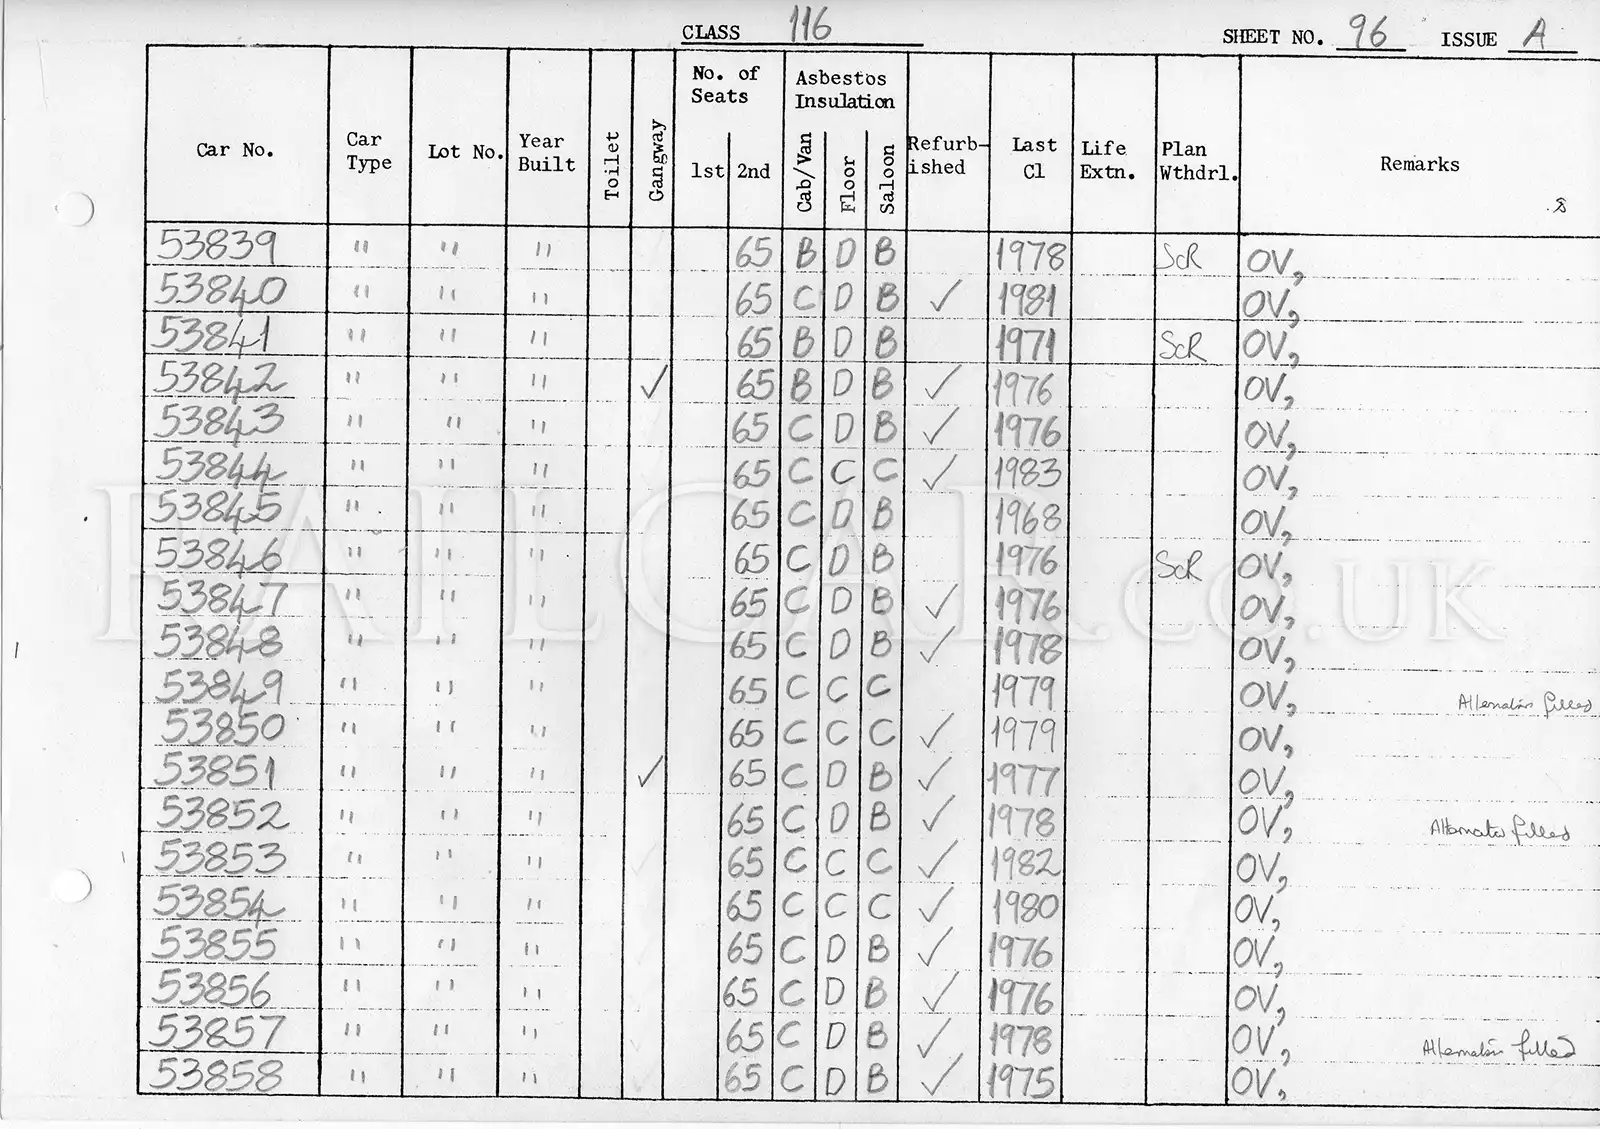 CLASS 116 SHEET NO. 96 ISSUE A
Car No. Car Type Lot No. Year Built Toilet Gangway No. of Seats 1st 2nd Asbestos Insulation Cab/Van Floor Saloon Refurb-ished Last Cl Life Extn. Plan Wthdrl. Remarks
53839 " " " 65 B D B 1978 ScR OV,
53840 " " " 65 C D B ✓ 1981 OV,
53841 " " " 65 B D B 1971 ScR OV,
53842 " " " ✓ 65 B D B ✓ 1976 OV,
53843 " " " 65 C D B ✓ 1976 OV,
53844 " " " 65 C C C ✓ 1983 OV,
53845 " " " 65 C D B 1968 OV,
53846 " " " 65 C D B 1976 ScR OV,
53847 " " " 65 C D B ✓ 1976 OV,
53848 " " " 65 C D B ✓ 1978 OV,
53849 " " " 65 C C C 1979 OV, Alternator fitted
53850 " " " 65 C C C ✓ 1979 OV,
53851 " " " ✓ 65 C D B ✓ 1977 OV,
53852 " " " 65 C D B ✓ 1978 OV, Alternator fitted
53853 " " " 65 C C C ✓ 1982 OV,
53854 " " " 65 C C C ✓ 1980 OV,
53855 " " " 65 C D B ✓ 1976 OV,
53856 " " " 65 C D B ✓ 1976 OV,
53857 " " " 65 C D B ✓ 1978 OV, Alternator fitted
53858 " " " 65 C D B ✓ 1975 OV,
RAILCAR.CO.UK